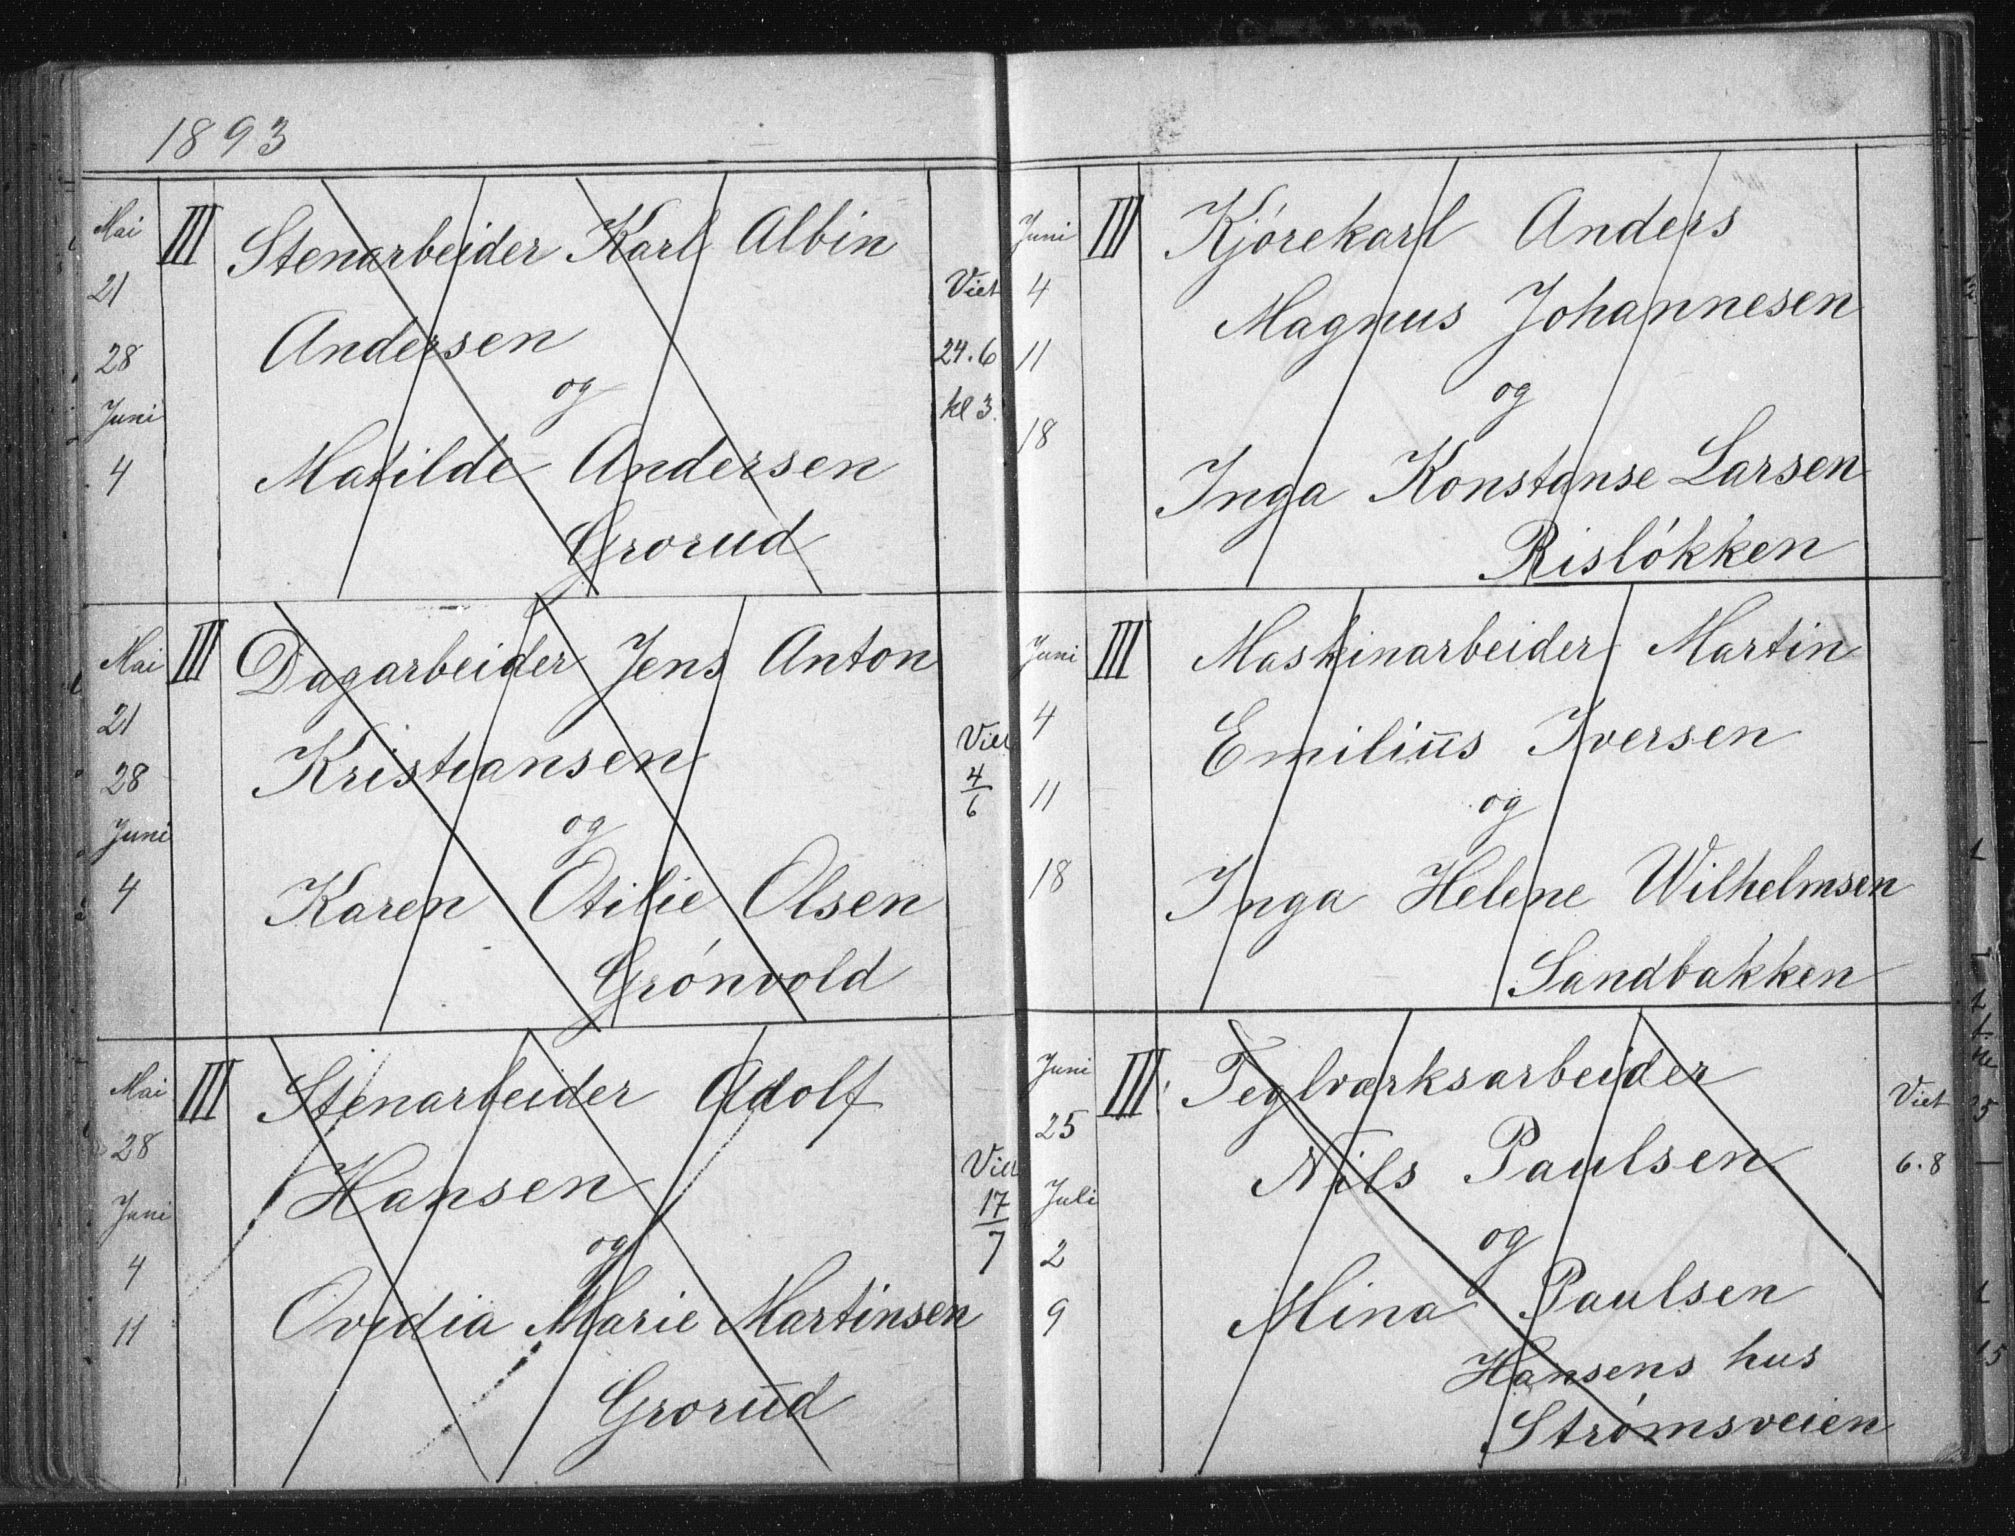 1893
Mai 21 28 Juni 4
III Stenarbeider Karl Albin
Andersen
og
Matilde Andersen
Grorud
Viet
24.6
kl 3.
Mai 21 28 Juni 4
III Dagarbeider Jens Anton
Kristiansen
og
Karen Otilie Olsen
Grónvold
Viet
4/6
Mai 28 Juni 4 11
III Stenarbeider Adolf
Hansen
og
Ovidia Marie Martinsen
Grorud
Viet
17/7
Juni 4 11 18
III Kjórekarl Anders
Magnus Johannesen
og
Inga Konstanse Larsen
Rislókken
Juni 4 11 18
III Maskinarbeider Martin
Emilius Iversen
og
Inga Helene Wilhelmsen
Sandbakken
Juni 25 Juli 2 9
III Teglværksarbeider
Nils Paulsen
og
Mina Paulsen
Hansens hus
Strómsveien
Viet
6.8